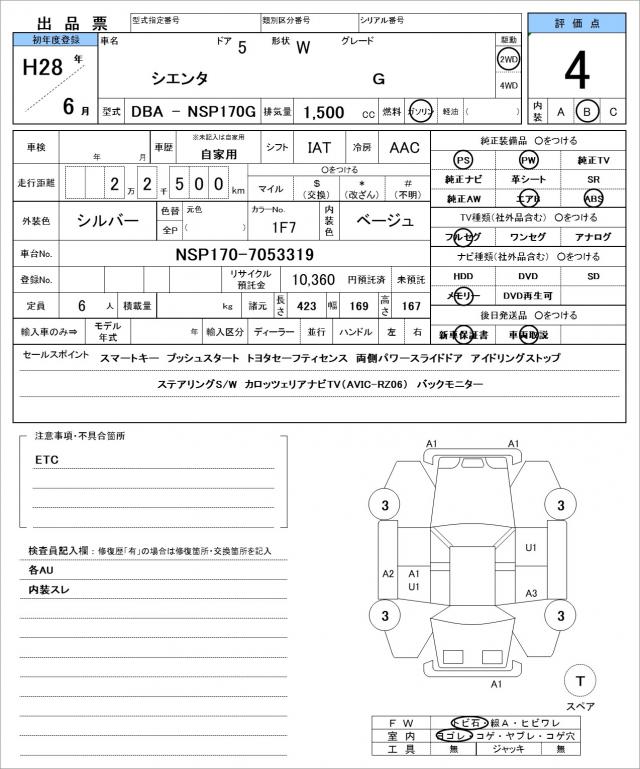 出 品 票 型式指定番号 類別区分番号 シリアル番号 評 価 点
初年度登録 車名 ドア 5 形状 W グレード 駆動
H28 年 シエンタ G 2WD 4
4WD
6 月 型式 DBA - NSP170G 排気量 1,500 cc 燃料 ガソリン 軽油 ( ) 内装 A B C
車検 年 月 車歴 ※未記入は自家用 自家用 シフト IAT 冷房 AAC 純正装備品 〇をつける
PS PW 純正TV
走行距離 2 万 2 千 5 0 0 km マイル 〇をつける $ (交換) * (改ざん) # (不明) 純正ナビ 革シート SR
純正AW エアB ABS
外装色 シルバー 色替 全P 元色 ( ) カラーNo. 1F7 内装色 ベージュ TV種類(社外品含む) 〇をつける
フルセグ ワンセグ アナログ
車台No. NSP170-7053319 ナビ種類(社外品含む) 〇をつける
登録No. リサイクル預託金 10,360 円預託済 未預託 HDD DVD SD
定員 6 人 積載量 kg 諸元 長さ 423 幅 169 高さ 167 メモリー DVD再生可
後日発送品 〇をつける
輸入車のみ⇒ モデル年式 年 輸入区分 ディーラー 並行 ハンドル 左 右 新車保証書 車両取説
セールスポイント スマートキー プッシュスタート トヨタセーフティセンス 両側パワースライドドア アイドリングストップ
ステアリングS/W カロッツェリアナビTV(AVIC-RZ06) バックモニター
注意事項・不具合箇所
ETC
検査員記入欄:修復歴「有」の場合は修復箇所・交換箇所を記入
各AU
内装スレ
A1 A1
3 3
U1
A2 A1 U1 A3
3 3
A1
T
スペア
F W トビ石・線A・ヒビワレ
室 内 ヨゴレ・コゲ・ヤブレ・コゲ穴
工 具 無 ジャッキ 無